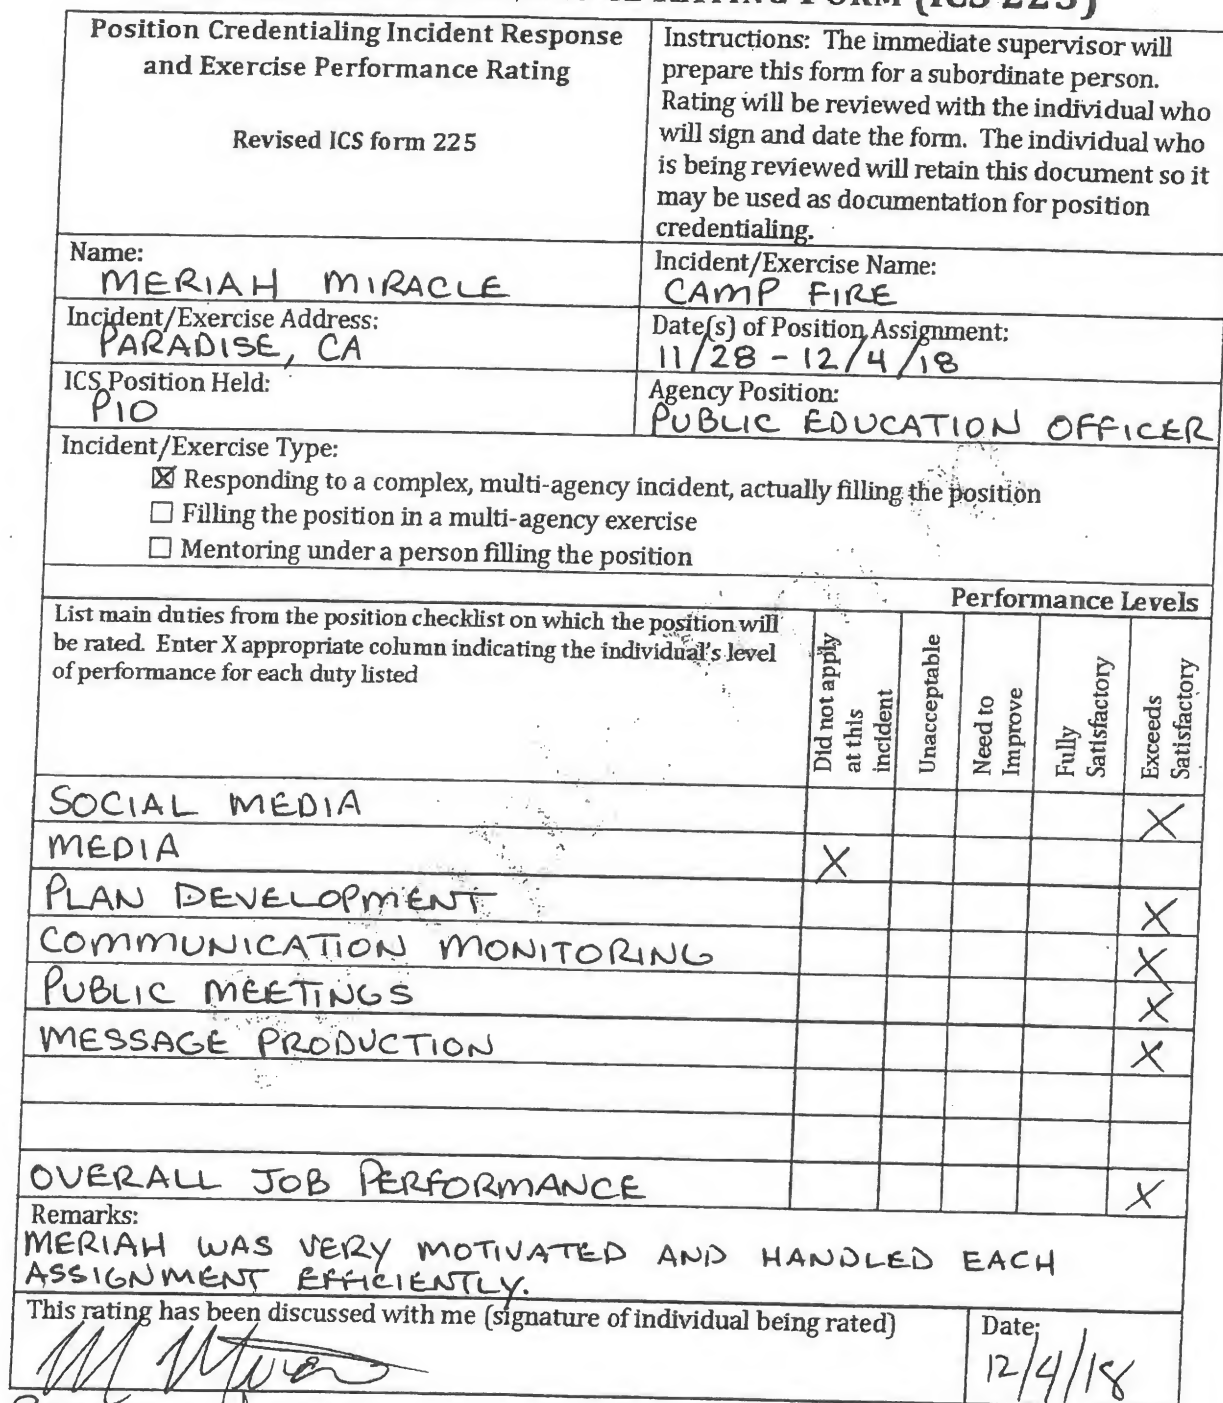 RATING FORM (ICS 225)
Position Credentialing Incident Response
and Exercise Performance Rating
Revised ICS form 225
Instructions: The immediate supervisor will
prepare this form for a subordinate person.
Rating will be reviewed with the individual who
will sign and date the form. The individual who
is being reviewed will retain this document so it
may be used as documentation for position
credentialing.
Name:
MERIAH MIRACLE
Incident/Exercise Name:
CAMP FIRE
Incident/Exercise Address:
PARADISE, CA
Date(s) of Position Assignment:
11/28 - 12/4/18
ICS Position Held:
PIO
Agency Position:
PUBLIC EDUCATION OFFICER
Incident/Exercise Type:
☒ Responding to a complex, multi-agency incident, actually filling the position
☐ Filling the position in a multi-agency exercise
☐ Mentoring under a person filling the position
Performance Levels
List main duties from the position checklist on which the position will
be rated. Enter X appropriate column indicating the individual's level
of performance for each duty listed
Did not apply
at this
incident
Unacceptable
Need to
Improve
Fully
Satisfactory
Exceeds
Satisfactory
SOCIAL MEDIA X
MEDIA X
PLAN DEVELOPMENT X
COMMUNICATION MONITORING X
PUBLIC MEETINGS X
MESSAGE PRODUCTION X
OVERALL JOB PERFORMANCE X
Remarks:
MERIAH WAS VERY MOTIVATED AND HANDLED EACH
ASSIGNMENT EFFICIENTLY.
This rating has been discussed with me (signature of individual being rated)
Date:
12/4/18